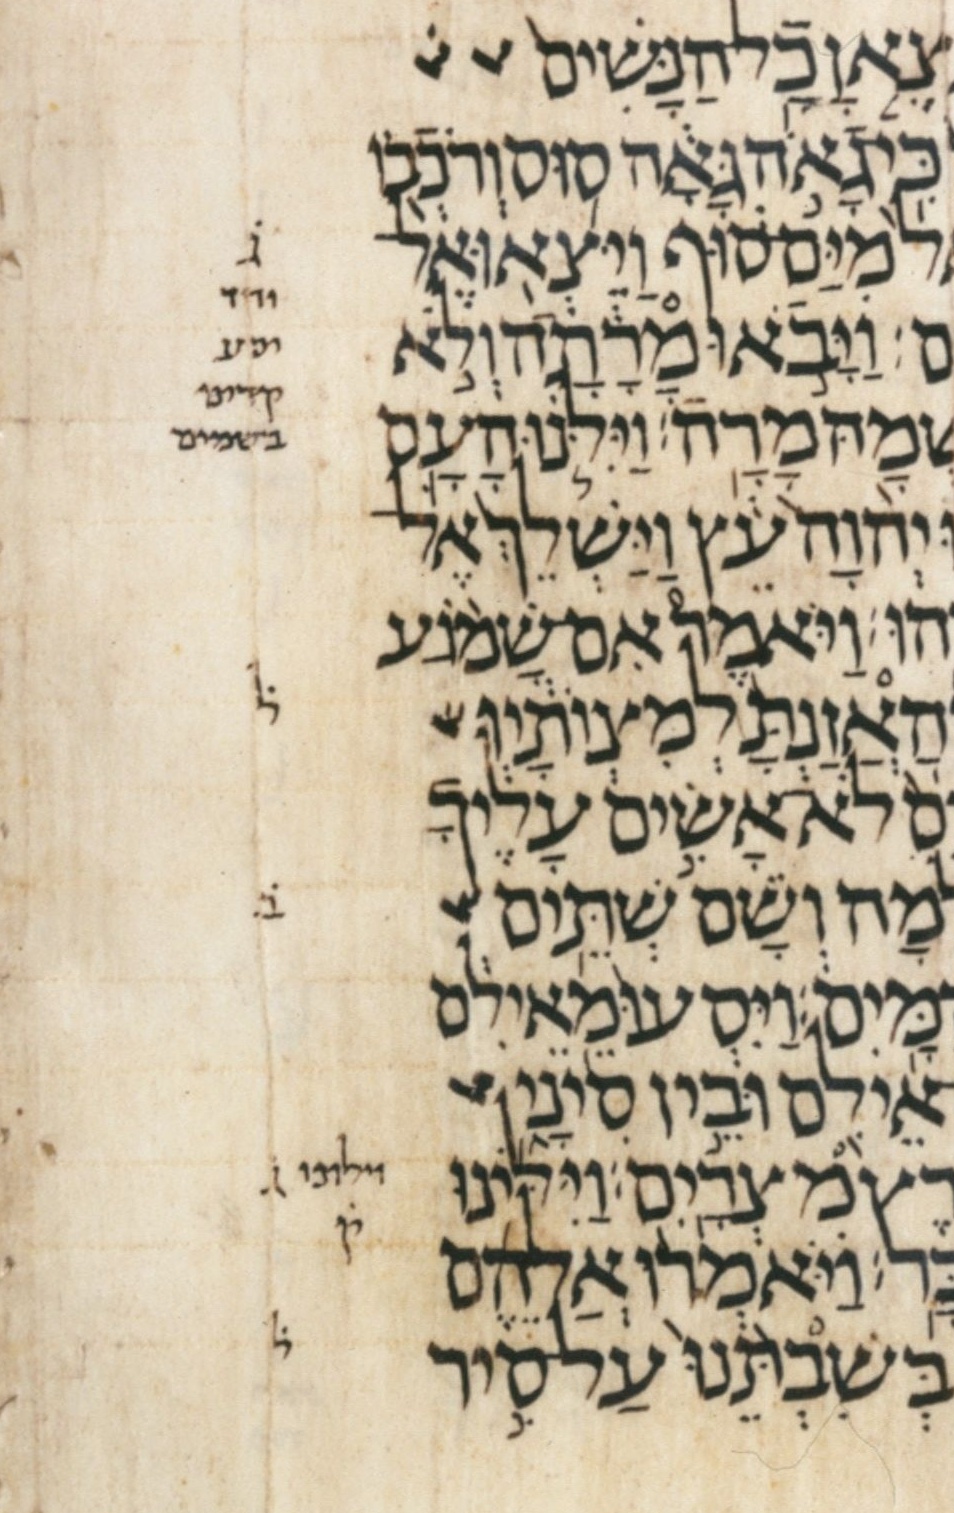 צֶאןָ כָל הַנָּשִׁים
כִּי גָאֹה גָּאָה סוּס וְרֹכְבוֹ
מִיַּם סוּף וַיֵּצְאוּ אֶל
ם׃ וַיָּבֹאוּ מָרָתָה וְלֹא
שְׁמָהּ מָרָה׃ וַיִּלֹּנוּ הָעָם
יְהוָה עֵץ וַיַּשְׁלֵךְ אֶל
הוּ׃ וַיֹּאמֶר אִם שָׁמוֹעַ
הַאֲזַנְתָּ לְמִצְוֹתָיו
ם לֹא אָשִׂים עָלֶיךָ
מָה וְשָׁם שְׁתֵּים
מָּיִם׃ וַיִּסְעוּ מֵאֵילִם
אֵילִם וּבֵין סִינָי
רֶץ מִצְרָיִם׃ וַיִּלִּינוּ
בָּר׃ וַיֹּאמְרוּ אֲלֵהֶם
בְּשִׁבְתֵּנוּ עַל סִיר
ג
קדים
בשמים
ל
ב
וילונו ג
ק
ל